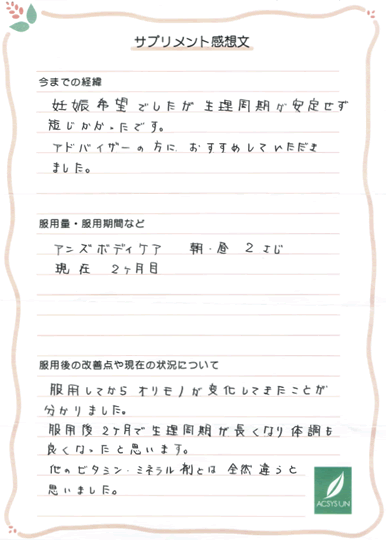 サプリメント感想文
今までの経緯
妊娠希望でしたが生理周期が安定せず
短じかかったです。
アドバイザーの方に おすすめしていただき
ました。
服用量・服用期間など
アンズボディケア 朝・昼 2さじ
現在 2ヶ月目
服用後の改善点や現在の状況について
服用してから オリモノが変化してきたことが
分かりました。
服用後2ヶ月で生理周期が長くなり体調も
良くなったと思います。
他のビタミン・ミネラル剤とは 全然違うと
思いました。
ACSYSUN